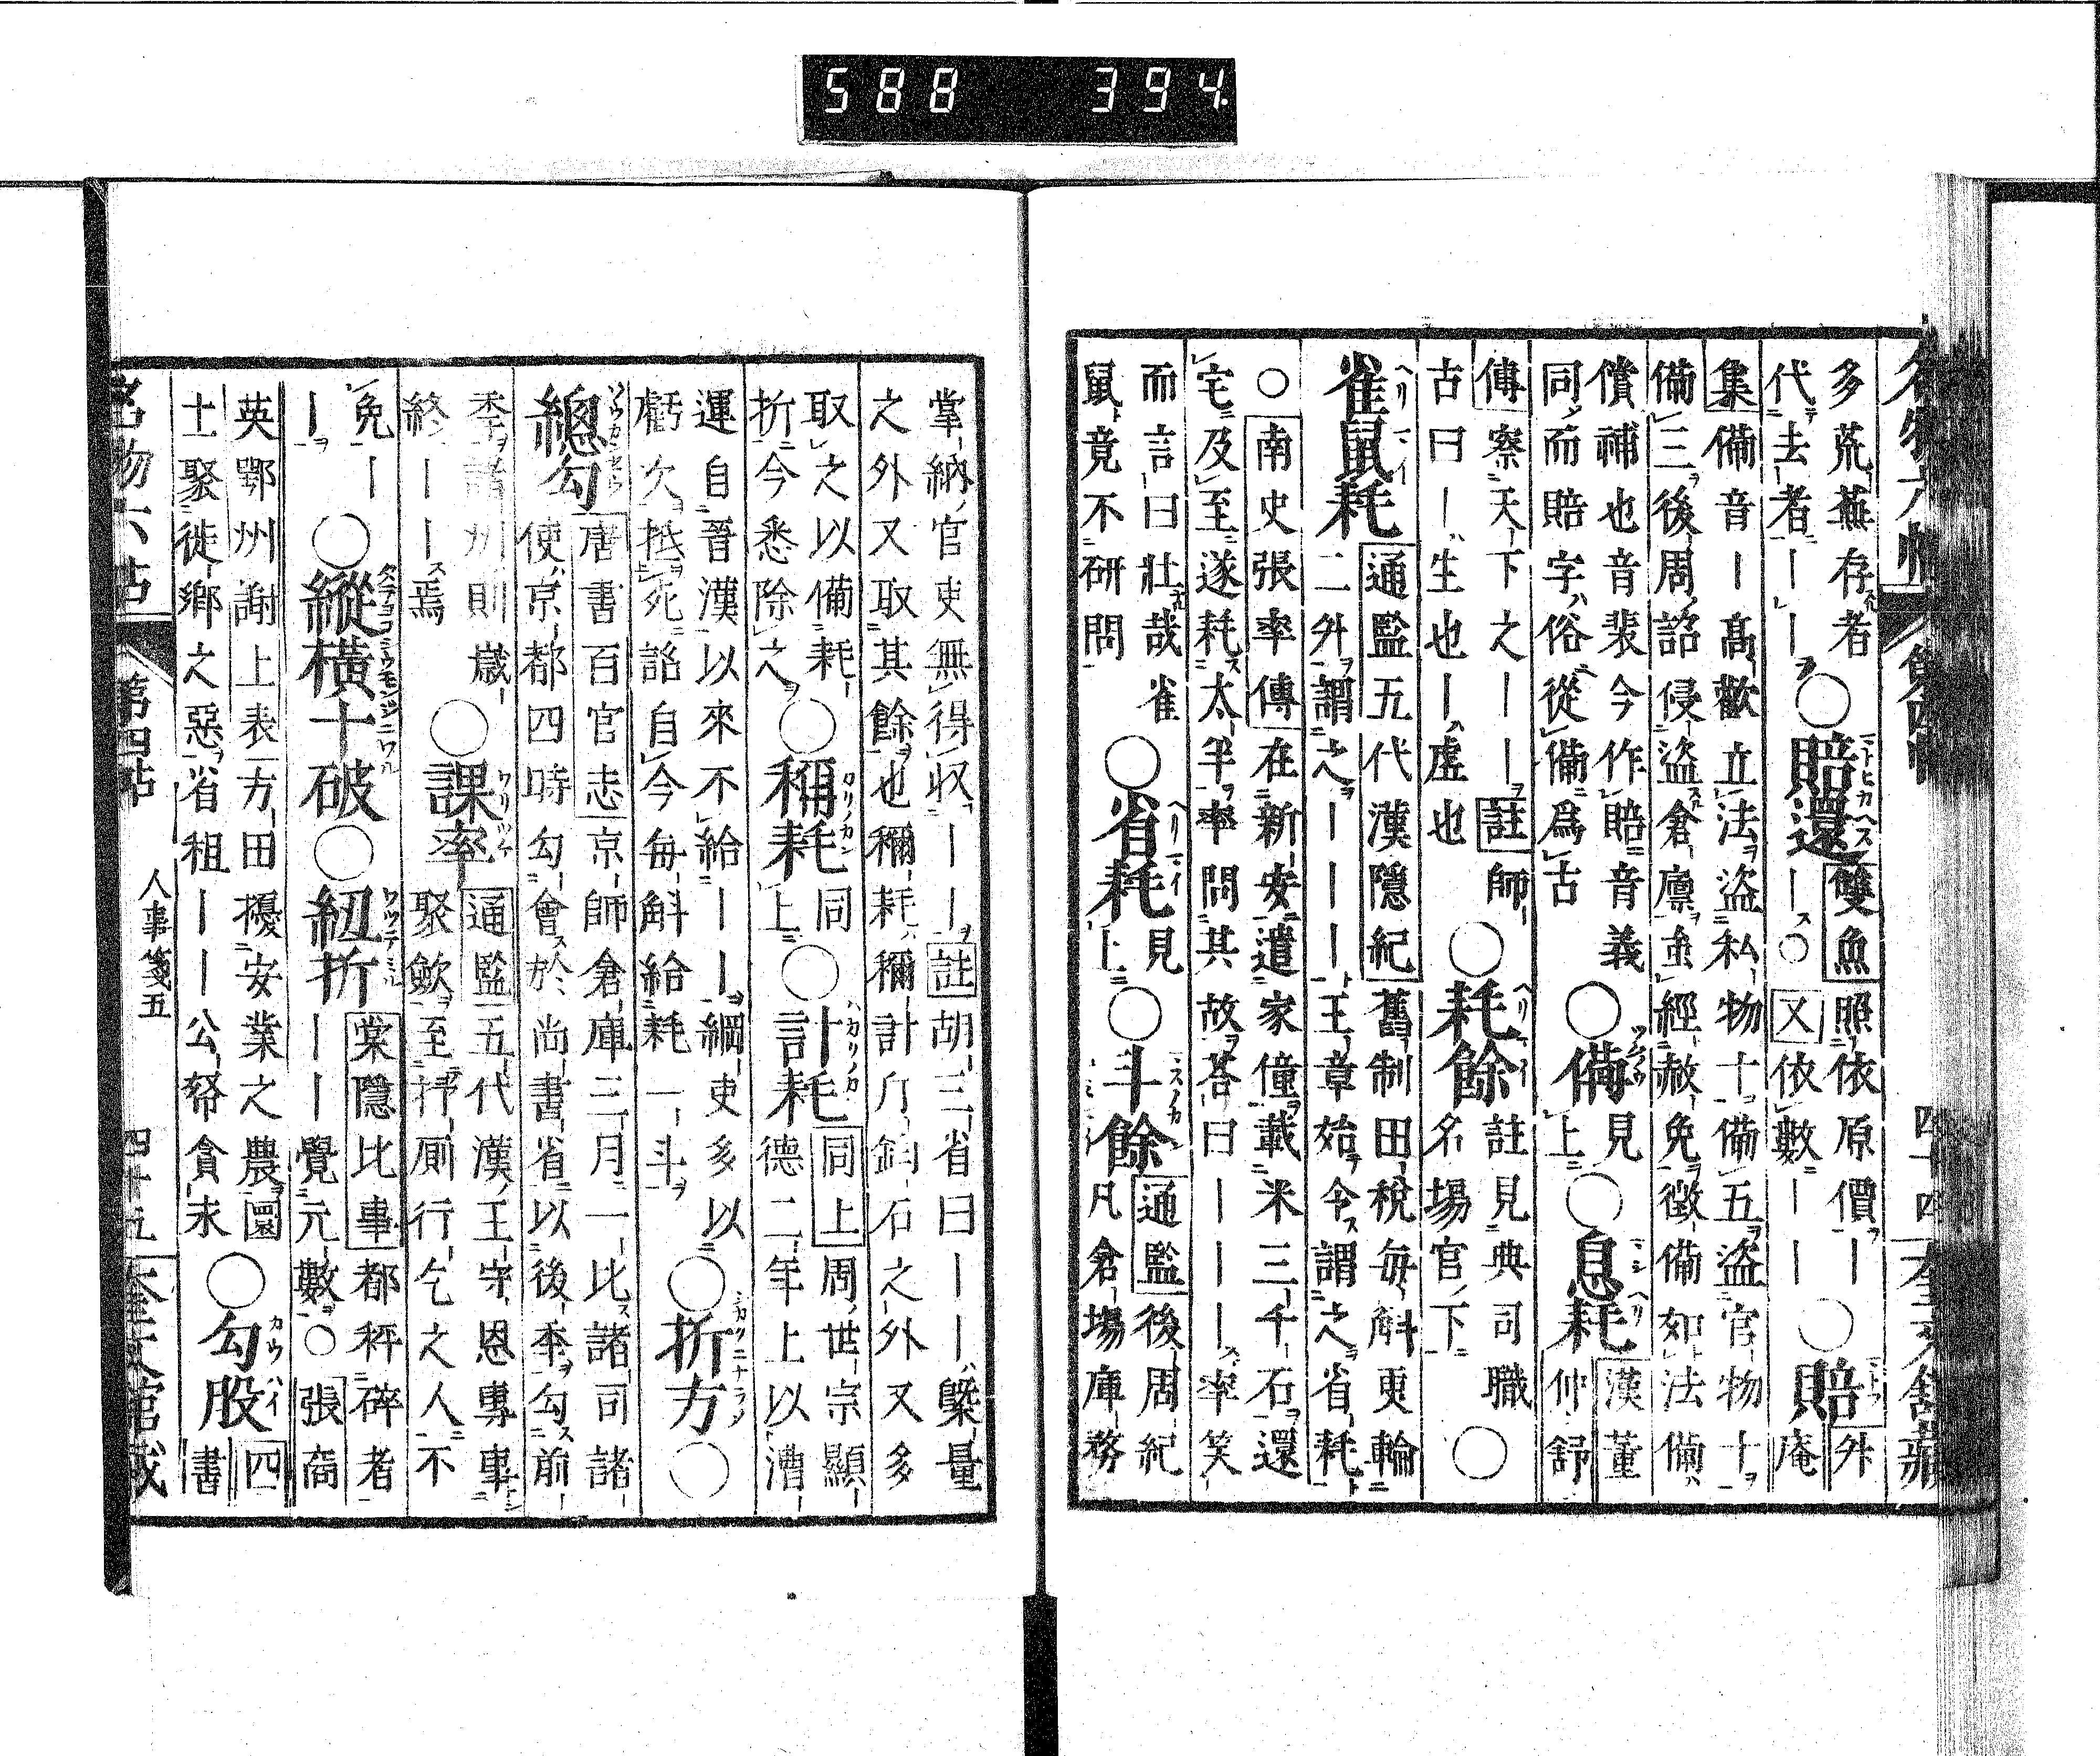 588 394
多荒蕪存者
代去者一一
○賠還
雙魚照依原價一
一○又依數一一
○賠
外
庵
集備音一高歡立法盜私物十備五盜官物十
備三後周詔侵盜倉廩重經赦免徵備如法備
償補也音裴今作賠音義
同而賠字俗從備爲古
○備
見
上
○息耗
漢董
仲舒
傳察天下之一一註師
古曰一生也一虛也
○耗餘
註見典司職
名場官下
○
雀鼠耗
通鑑五代漢隱紀舊制田稅每斛更輸
二外謂之一一一王章始令謂之省耗
○南史張率傳在新安遣家僮載米三千石還
宅及至遂耗太半率問其故荅曰一一一率笑
而言曰壯哉雀
鼠竟不研問
○省耗
見
上
○斗餘
通鑑後周紀
凡倉場庫務
掌納官吏無得收一一註胡三省曰一一槩量
之外又取其餘也稱耗稱計斤鈞石之外又多
取之以備耗
折今悉除之
○稱耗
同
上
○計耗
同上周世宗顯
德二年上以漕
運自晉漢以來不給一一綱吏多以
虧欠抵死詔自今每斛給耗一斗
○折方
○
總勾
唐書百官志京師倉庫三月一比諸司諸
使京都四時勾會於尚書省以後季勾前
季諸州則歲
終一一焉
○課率
通鑑五代漢王守恩專事
聚歛至抒厠行乞之人不
免一
一
○縱橫十破
○紐折
棠隱比事都秤碎者
一一覺元數○張裔
英鄂州謝上表方田擾安業之農園
士聚徙鄉之惡省租一一公帑貪求
○勾股
四
書
名物六帖
第四帖
人事箋五
四十五
奎文館藏